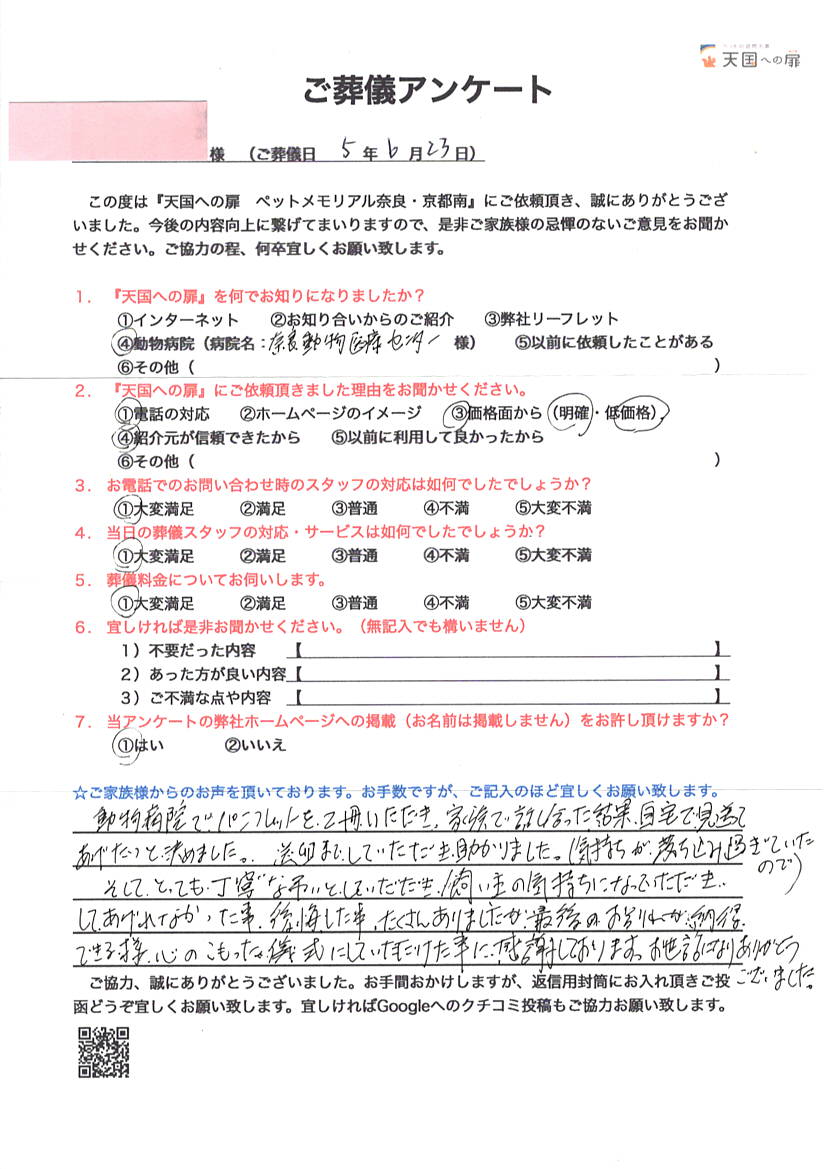 天国への扉
ご葬儀アンケート
様 (ご葬儀日 5 年 6 月 23 日)
この度は『天国への扉 ペットメモリアル奈良・京都南』にご依頼頂き、誠にありがとうござ
いました。今後の内容向上に繋げてまいりますので、是非ご家族様の忌憚のないご意見をお聞か
せください。ご協力の程、何卒宜しくお願い致します。
1. 『天国への扉』を何でお知りになりましたか?
①インターネット ②お知り合いからのご紹介 ③弊社リーフレット
④動物病院(病院名:奈良動物医療センター 様) ⑤以前に依頼したことがある
⑥その他( )
2. 『天国への扉』にご依頼頂きました理由をお聞かせください。
①電話の対応 ②ホームページのイメージ ③価格面から(明確・低価格)
④紹介元が信頼できたから ⑤以前に利用して良かったから
⑥その他( )
3. お電話でのお問い合わせ時のスタッフの対応は如何でしたでしょうか?
①大変満足 ②満足 ③普通 ④不満 ⑤大変不満
4. 当日の葬儀スタッフの対応・サービスは如何でしたでしょうか?
①大変満足 ②満足 ③普通 ④不満 ⑤大変不満
5. 葬儀料金についてお伺いします。
①大変満足 ②満足 ③普通 ④不満 ⑤大変不満
6. 宜しければ是非お聞かせください。(無記入でも構いません)
1)不要だった内容 【 】
2)あった方が良い内容【 】
3)ご不満な点や内容 【 】
7. 当アンケートの弊社ホームページへの掲載(お名前は掲載しません)をお許し頂けますか?
①はい ②いいえ
☆ご家族様からのお声を頂いております。お手数ですが、ご記入のほど宜しくお願い致します。
動物病院でパンフレットを2冊いただき、家族で話し合った結果、自宅で見送って
あげたいと決めました。送迎までしていただき助かりました。(気持ちが落ち込み過ぎていた
ので)
そして、とっても丁寧な弔いをしていただき、飼い主の気持ちになっていただき、
してあげれなかった事、後悔した事、たくさんありましたが、最後のお別れが納得
できる様、心のこもった儀式にしていただけた事に、感謝しております。お世話になりありがとう
ございました。
ご協力、誠にありがとうございました。お手間おかけしますが、返信用封筒にお入れ頂きご投
函どうぞ宜しくお願い致します。宜しければGoogleへのクチコミ投稿もご協力お願い致します。